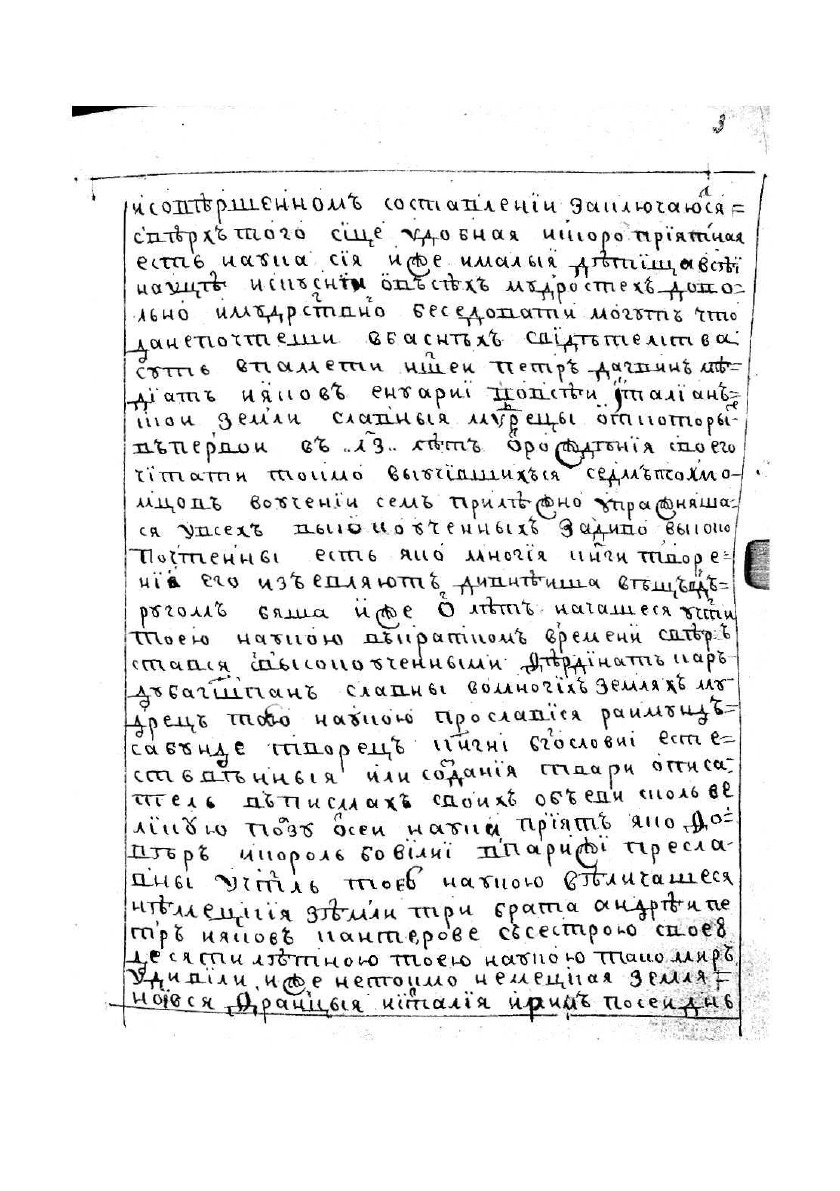 3
исовѣршенномъ составленїи заключаюⷭ҇ся =
свѣрхъ того сїце удобная искоро прїятная
есть наука сїя иже ималыя дѣтища всеї
наущѣ искуснїи овъсѣхъ мудростехъ дово=
льно имудрⷭ҇твено беседовати могутъ что
данепочтеши вбаснѣхъ свїдѣтелства
суть впамети нш҃еи петръ дагвинъ мѣ=
дїатъ ияковъ енуариї вовсѣи їталїанъ=
скои земли славныя мудрецы ѿкоторы
въпервои въ ..и҃з.. лѣтъ ѿрождѣнїя своего
чїтати токмо выучївшихъся седмътохмо=
мцовъ воученїи семъ прилѣжно упражняша=
ся увсехъ высокоученныхъ задиво высоко
почтенны есть яко многїя книги творе=
нїя его изъевляютъ дивнѣиша вѣщъвдъ=
ругомъ бяша иже ѿ лѣтъ начашеся учти
тоею наукою въкраткомъ времени свѣръ
стався свысокоученными фѣрдїнатъ каръ
дубагшпанъ славны вомногїхъ земляхъ му
дрецъ тою наукою прославїся раимундъ=
сабунде творецъ книги бг҃ословиї есте=
ствѣнныя или созданїя твари описа
тель въписмахъ своихъ объеви сколь ве
лїкую позу ѿсеи науки прїятъ яко до=
ктъръ икороль бовїлиї впарижї пресла
вны учтⷧ҇ль тоею наукою вѣличашеся
нѣмецкїя зѣмли три брата андрѣи пе
тръ ияковъ кантерове съсестрою своею
десяти лѣтною тоею наукою тако миръ
удивїли иже нетокмо немецкая земля =
новся францыя иїталїя иримъ посеи днь